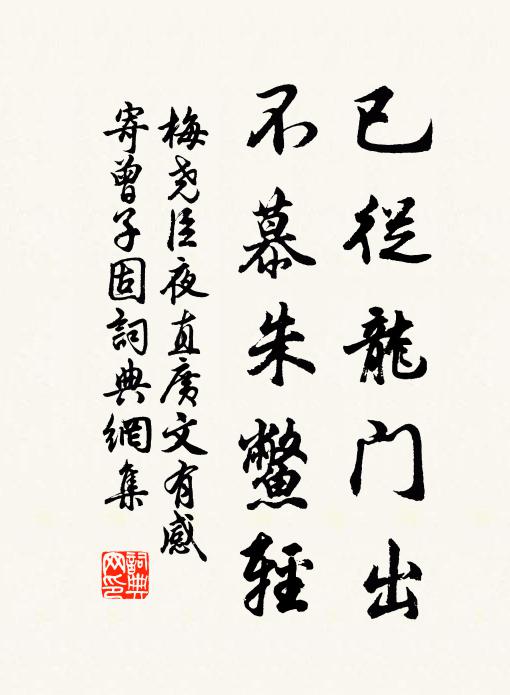 已從龍门出
不慕朱鱉輕
梅尧臣夜直廣文有感
寄曾子固詞典網集
詞典网印